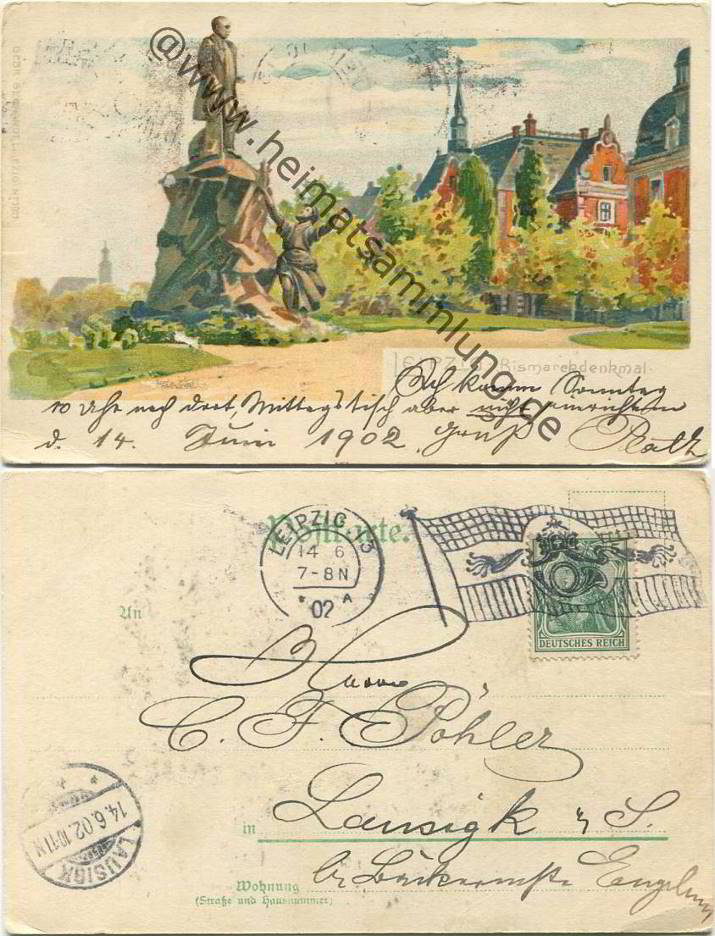 @www.heimatsammlung.de
LEIPZIG Bismarckdenkmal.
Ich komme Sonntag
10 Uhr nach dort, Mittagstisch aber nicht
d. 14. Juni 1902. Gruß
Postkarte.
LEIPZIG 13
14 6
7-8N
* 02 A
DEUTSCHES REICH
An
Herrn
C. F. Pöhler
in Lausigk i/S.
Wohnung
(Straße und Hausnummer)
bei Bäckermstr. Engelmann
LAUSIGK
14.6.02.10-11N